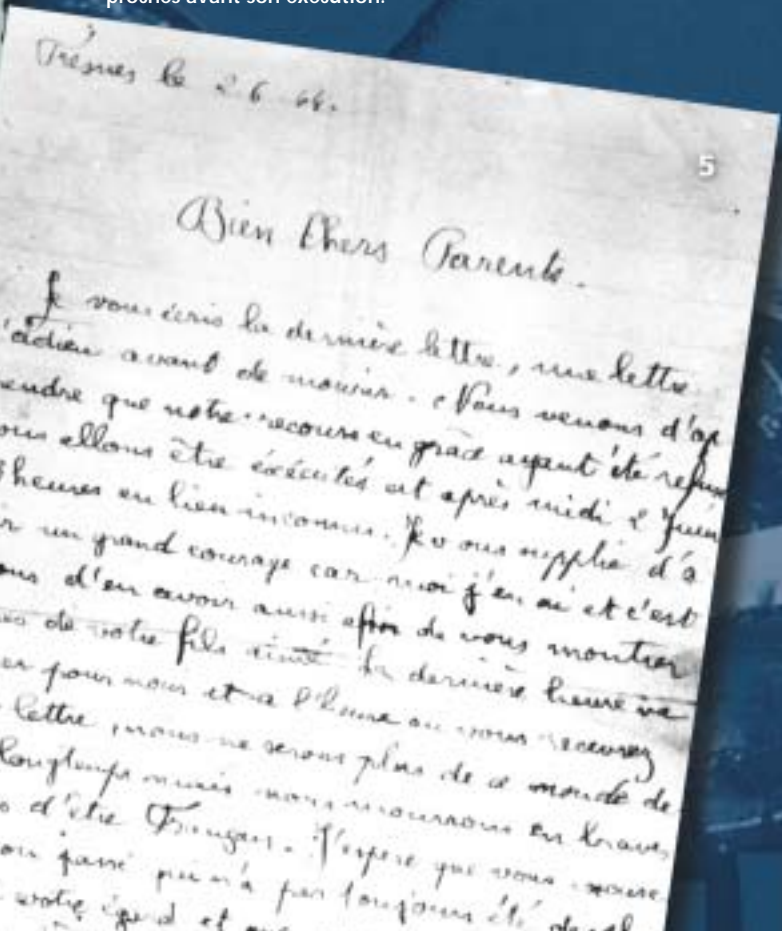 proches avant son exécution.
Fresnes le 2 6 44.
5
Bien Chers Parents.
Je vous écris la dernière lettre, une lettre
'adieu avant de mourir. Nous venons d'ap
endre que notre recours en grâce ayant été refus
ous allons être éxécutés cet après midi 2 Juin
heures en lieu inconnu. Je vous supplie d'a
ir un grand courage car moi j'en ai et c'est
ous d'en avoir aussi afin de vous montrer
es de votre fils aimé la dernière heure va
er pour nous et a l'heure ou vous recevrez
lettre, nous ne serons plus de ce monde de
longtemps mais nous mourrons en braves
s d'être Français. J'espère que vous
on passé qui n'a pas toujours été
votre égard et